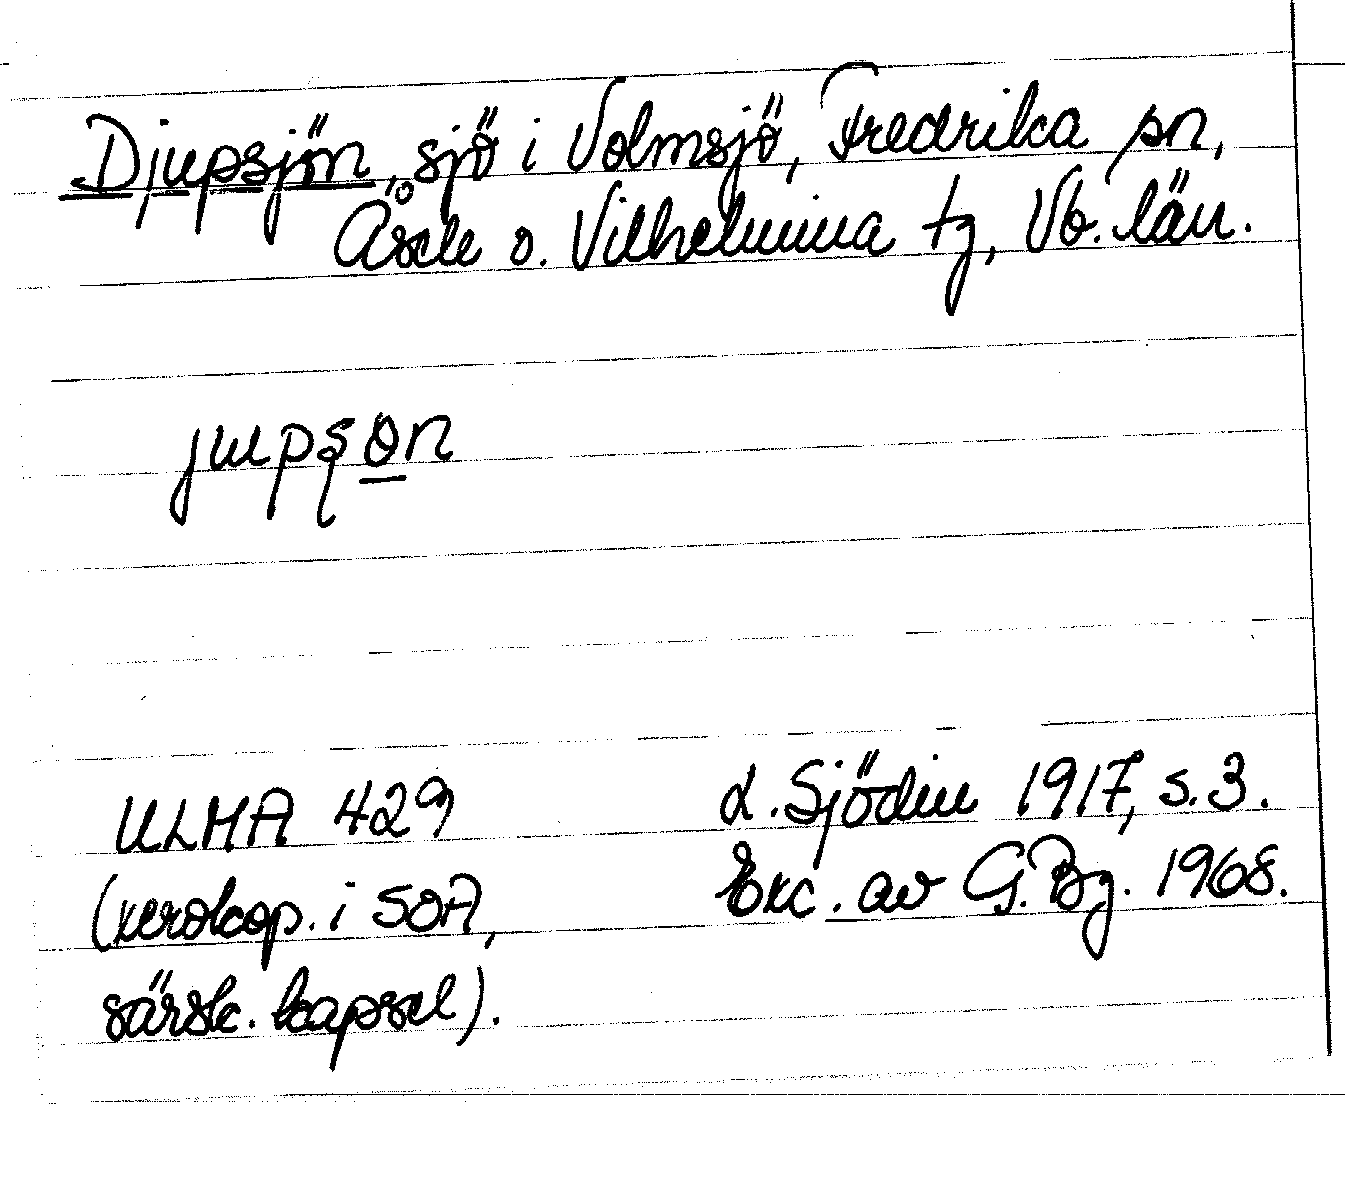 Djupsjön, sjö i Volmsjö, Fredrika sn,
Åsele o. Vilhelmina tg, Vb. län.
ULMA 429
(xerokop. i SOA,
särsk. kapsel).
L. Sjödin 1917, s. 3.
Exc. av G. Bg. 1968.